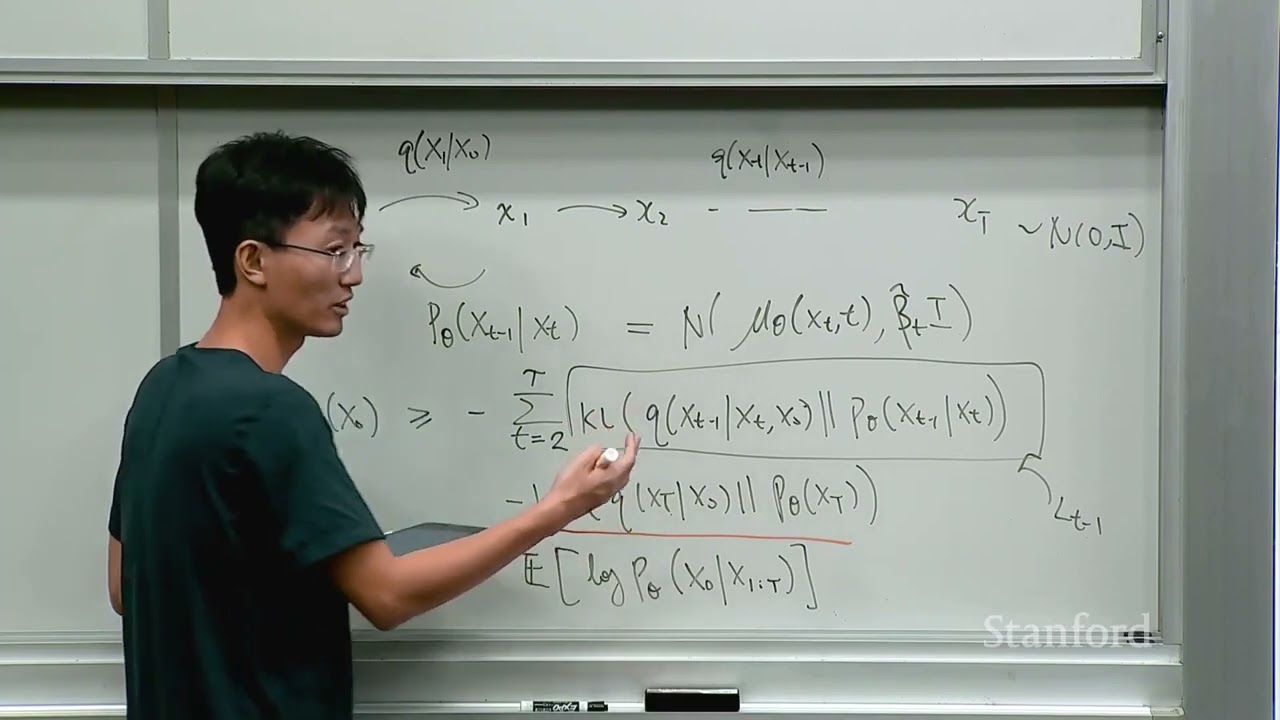 q(x₁|x₀) q(xt|xt-1)
x₁ → x₂ - — xT ~ N(0,I)
Pθ(xt-1|xt) = N( μθ(xt,t), β̂t I )
(x₀) ≥ - Σ T t=2 KL( q(xt-1|xt,x₀) || Pθ(xt-1|xt))
- q(xT|x₀) || Pθ(xT))
Lt-1
E[log Pθ(x₀|x1:T)]
Stanford
EXPO